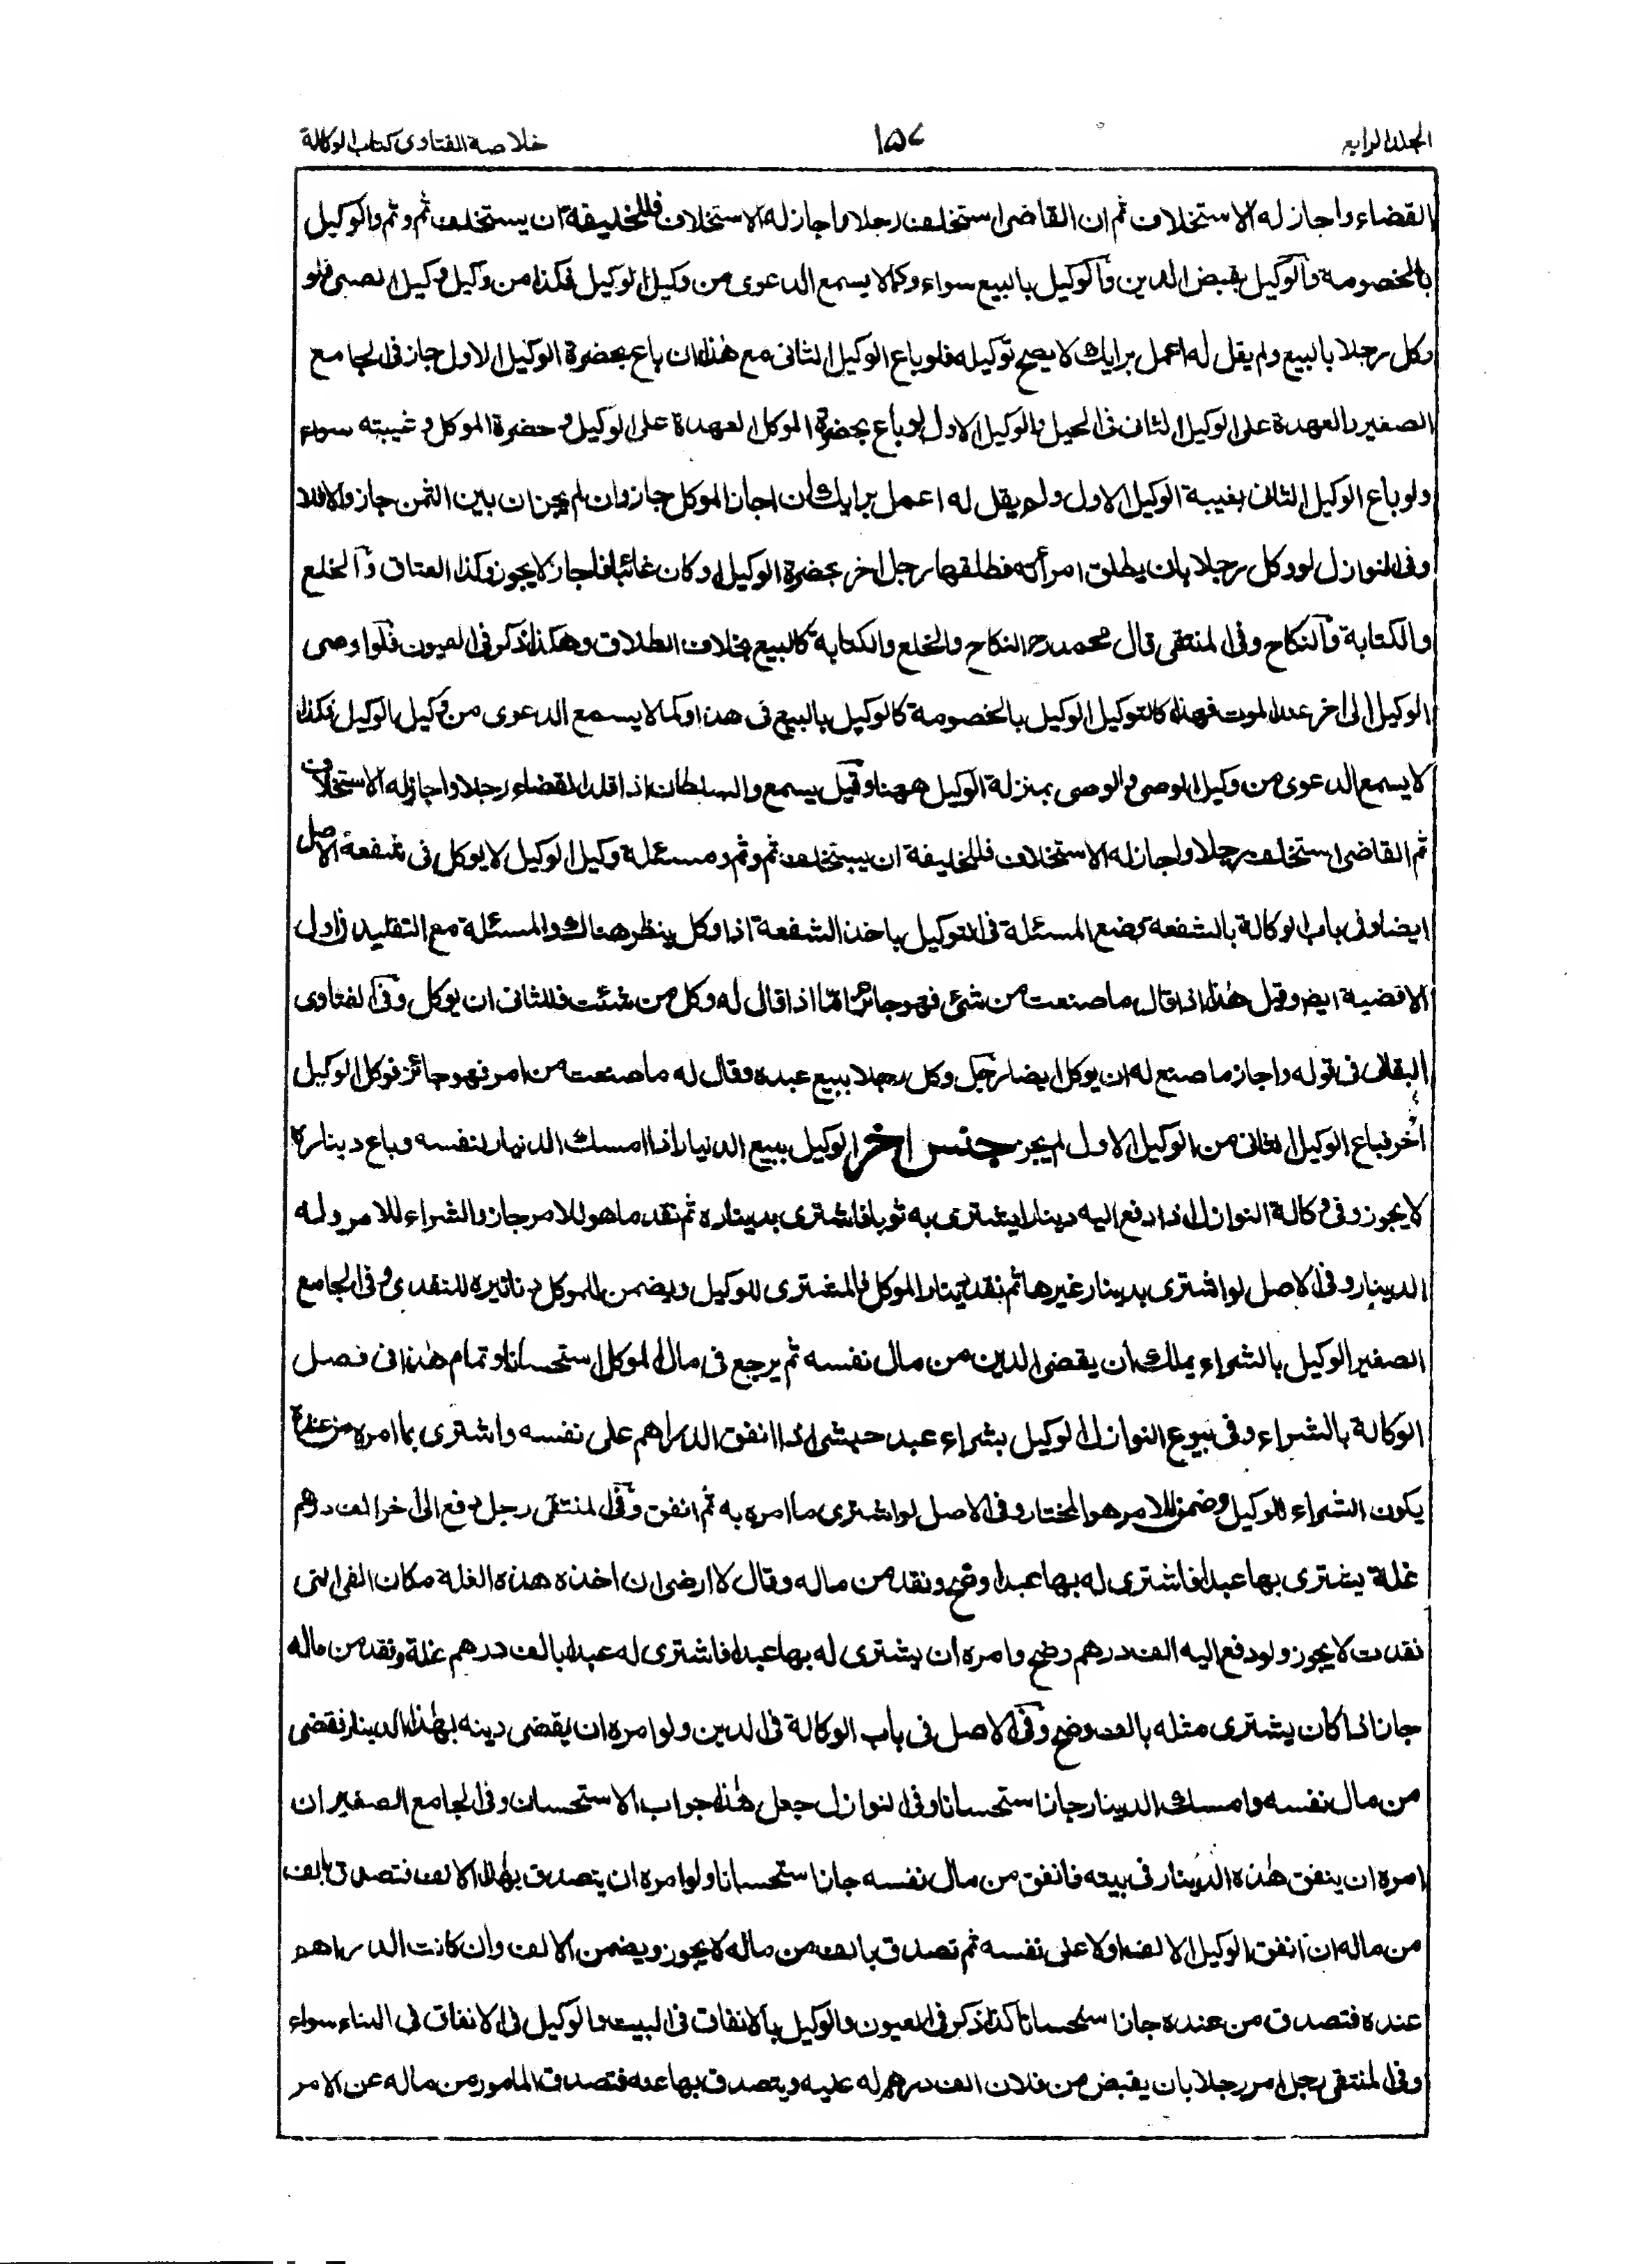 الجلد الرابع ١٥٧ خلاصة الفتاوى كتاب الوكالة
القضاء واجاز له الاستخلاف ثم ان القاضى استخلف رجلا واجاز له الاستخلاف فللخليفة ان يستخلف ثم وثم والوكيل
بالخصومة والوكيل بقبض الدين والوكيل بالبيع سواء وكما لا يسمع الدعوى من وكيل الوكيل فكذا من وكيل وكيل الصبى فلو
وكل رجلا بالبيع ولم يقل له اعمل برايك لا يصح توكيله فلو باع الوكيل الثانى مع هذا ان باع بحضرة الوكيل الاول جاز فى الجامع
الصغير والعهدة على الوكيل الثانى فى الحيل والوكيل الاول لو باع بحضرة الموكل العهدة على الوكيل و حضرة الموكل وغيبته سواء
ولو باع الوكيل الثانى بغيبة الوكيل الاول ولم يقل له اعمل برايك ان اجاز الموكل جاز وان لم يجز ان بين الثمن جاز والا فلا
وفى النوازل لو وكل رجلا بان يطلق امرأته فطلقها رجل اخر بحضرة الوكيل او كان غائبا فاجاز لا يجوز وكذا العتاق والخلع
والكتابة والنكاح وفى المنتقى قال محمد رح النكاح والخلع والكتابة كالبيع بخلاف الطلاق وهكذا ذكر فى العيون فلو اوصى
الوكيل الى اخر عند الموت فهذا كالتوكيل الوكيل بالخصومة كالوكيل بالبيع فى هذا وكما لا يسمع الدعوى من وكيل الوكيل فكذا
لا يسمع الدعوى من وكيل الوصى والوصى بمنزلة الوكيل ههنا وقيل يسمع والسلطان اذا قلد القضاء رجلا واجاز له الاستخلاف
ثم القاضى استخلف رجلا واجاز له الاستخلاف فللخليفة ان يستخلف ثم وثم ومسئلة وكيل الوكيل لا يوكل فى شفعة الاصل
ايضا وفى باب الوكالة بالشفعة وضع المسئلة فى التوكيل باخذ الشفعة اذا وكل ينظر هناك والمسئلة مع التقليد فى اول
الاقضية ايض وقيل هذا اذا قال ما صنعت من شئ فهو جائز اما اذا قال له وكل من شئت فللثانى ان يوكل وفى الفتاوى
البقالى فى قوله واجاز ما صنع له ان يوكل ايضا رجل وكل رجلا ببيع عبده وقال له ما صنعت من امر فهو جائز فوكل الوكيل
اخر فباع الوكيل الثانى من الوكيل الاول لم يجز جنس اخر الوكيل ببيع الدنيار اذا امسك الدنيار لنفسه وباع ديناره
لا يجوز وفى وكالة النوازل اذا دفع اليه دينارا يشترى به ثوبا فاشترى بديناره ثم نقد ما هو للامر جاز والشراء للامر وله
الدينار وفى الاصل لو اشترى بدينار غيرها ثم نقد دينار الموكل فالمشترى للوكيل ويضمن للموكل دنانيره للتعدى وفى الجامع
الصغير الوكيل بالشراء يملك ان يقضى الدين من مال نفسه ثم يرجع فى مال الموكل استحسانا وتمام هذا فى فصل
الوكالة بالشراء وفى بيوع النوازل الوكيل بشراء عبد حبشى اذا انفق الدراهم على نفسه واشترى بما امره من عنده
يكون الشراء للوكيل وضمن للامر هو المختار وفى الاصل لو اشترى ما امره به ثم انفق وفى المنتقى رجل دفع الى اخر الف درهم
غلة يشترى بها عبدا فاشترى له بها عبدا وضح ونقد من ماله وقال لا ارضى ان اخذه هذه الغلة مكان الف التى
نقدت لا يجوز ولو دفع اليه الف درهم وضح وامره ان يشترى له بها عبدا فاشترى له عبدا بالف درهم غلة ونقد من ماله
جاز اذا كان يشترى مثله بالف وضح وفى الاصل فى باب الوكالة فى الدين ولو امره ان يقضى دينه بهذا الدينار فقضى
من مال نفسه وامسك الدينار جاز استحسانا وفى النوازل جعل هذا جواب الاستحسان وفى الجامع الصغير ان
امره ان ينفق هذه الدينار فى بيته فانفق من مال نفسه جاز استحسانا ولو امره ان يتصدق بهذا الالف فتصدق بالف
من ماله ان انفق الوكيل الالف اولا على نفسه ثم تصدق بالف من ماله لا يجوز ويضمن الالف وان كانت الدراهم
عنده فتصدق من عنده جاز استحسانا كذا ذكر فى العيون والوكيل بالانفاق فى البيت والوكيل فى الانفاق فى البناء سواء
وفى المنتقى رجل امر رجلا بان يقبض من فلان الف درهم له عليه ويتصدق بها عنه فتصدق المامور من ماله عن الامر